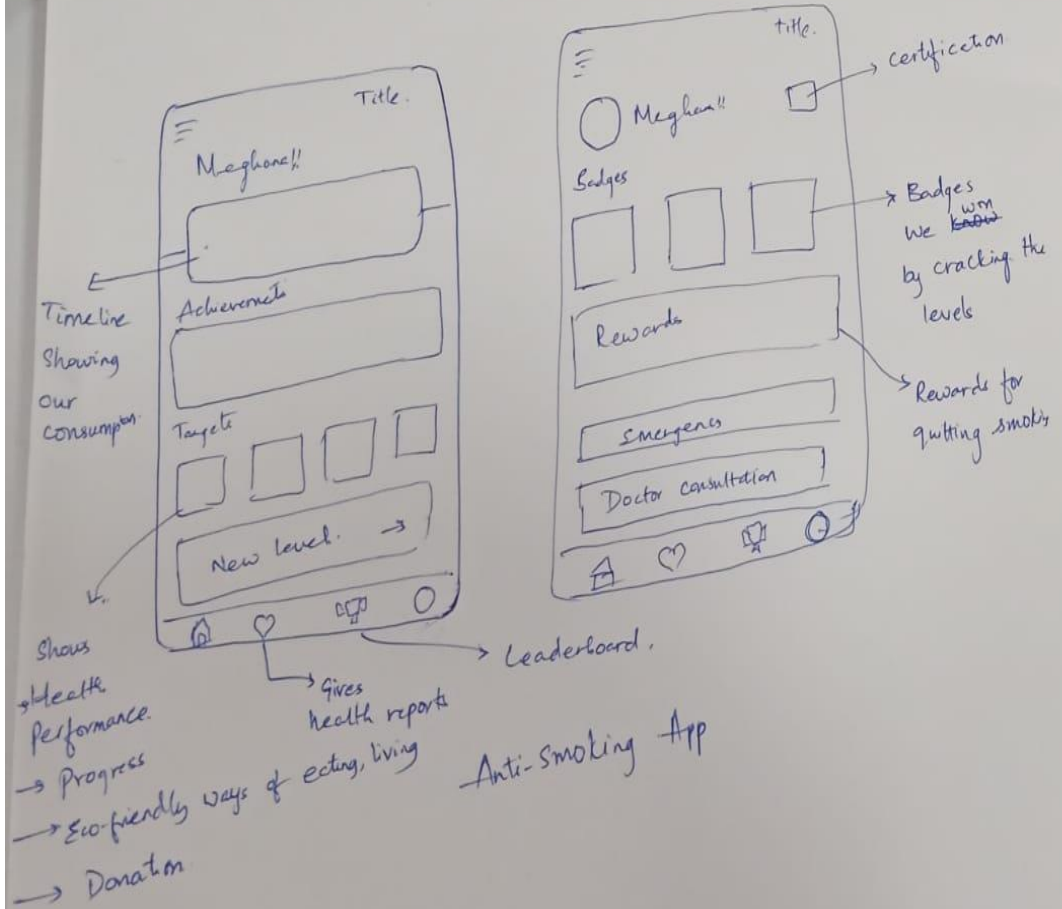 Title.
Meghana!!
Timeline
Showing
our
consumption.
Achievements
Targets
New level. →
Shows
→Health
Performance.
→ Progress
→ Eco-friendly ways of eating, living
→ Donation
Gives
health reports
Leaderboard.
title.
Meghana!!
certification
Badges
Badges
we know won
by cracking the
levels
Rewards
Rewards for
quitting smoking
Emergency
Doctor consultation
Anti-smoking App